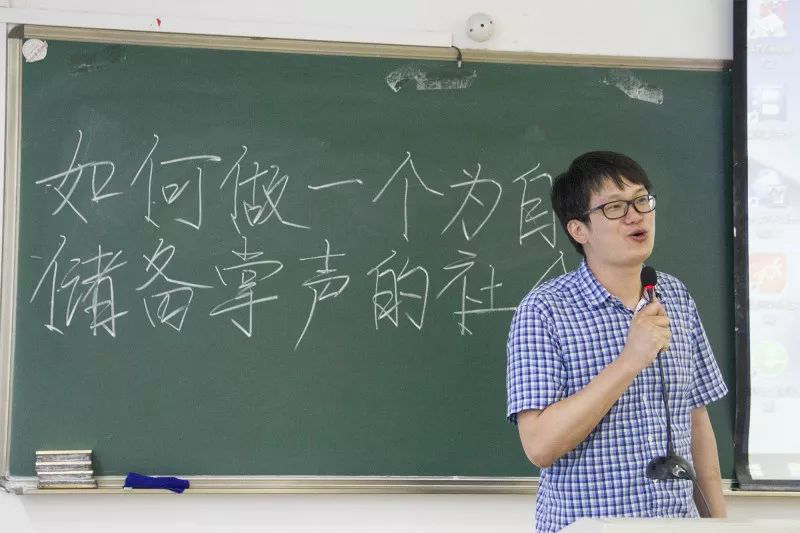 如何做一个为自
储备掌声的社会